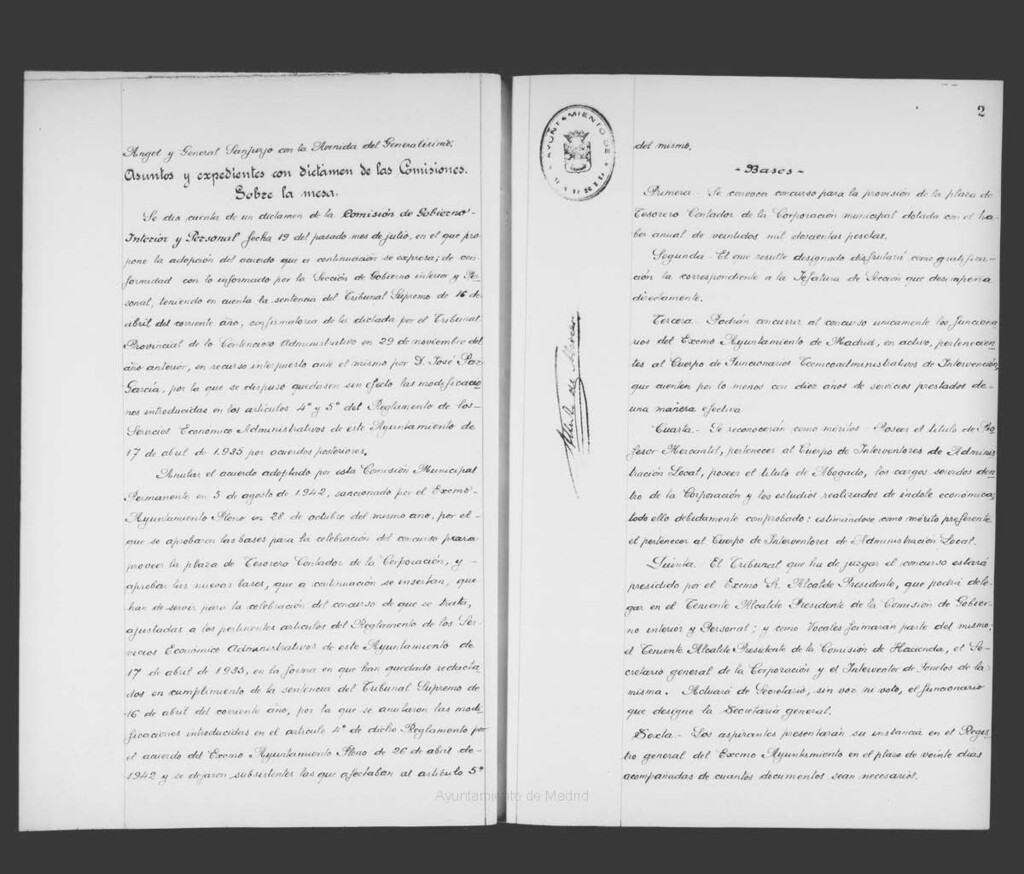 Angel y General Sanjurjo con la Avenida del Generalísimo.
Asuntos y expedientes con dictamen de las Comisiones.
Sobre la mesa.
Se dio cuenta de un dictamen de la Comisión de Gobierno
Interior y Personal fecha 19 del pasado mes de julio, en el que pro
pone la adopción del acuerdo que a continuación se expresa; de con
formidad con lo informado por la Sección de Gobierno interior y Per
sonal, teniendo en cuenta la sentencia del Tribunal Supremo de 16 de
abril del corriente año, confirmatoria de la dictada por el Tribunal
Provincial de lo Contencioso Administrativo en 29 de noviembre del
año anterior, en recurso interpuesto ante el mismo por D. José Paz
García, por la que se dispuso quedasen sin efecto las modificacio
nes introducidas en los artículos 4º y 5º del Reglamento de los
Servicios Económico Administrativos de este Ayuntamiento de
17 de abril de 1.935 por acuerdos posteriores.
Anular el acuerdo adoptado por esta Comisión Municipal
Permanente en 5 de agosto de 1942, sancionado por el Excmo
Ayuntamiento Pleno en 28 de octubre del mismo año, por el
que se aprobaran las bases para la celebración del concurso para
proveer la plaza de Tesorero Contador de la Corporación, y
aprobar las nuevas bases, que a continuación se insertan, que
han de servir para la celebración del concurso de que se trata,
ajustadas a los pertinentes artículos del Reglamento de los Ser
vicios Económico Administrativos de este Ayuntamiento de
17 de abril de 1935, en la forma en que han quedado redacta
dos en cumplimiento de la sentencia del Tribunal Supremo de
16 de abril del corriente año, por la que se anularon las modi
ficaciones introducidas en el artículo 4º de dicho Reglamento por
el acuerdo del Excmo Ayuntamiento Pleno de 26 de abril de
1942 y se dejaron subsistentes las que afectaban al artículo 5º
AYUNTAMIENTO DE MADRID
2
del mismo.
- Bases -
Primera.- Se convoca concurso para la provisión de la plaza de
Tesorero Contador de la Corporación municipal dotada con el ha
ber anual de veintidos mil doscientas pesetas.
Segunda.- El que resulte designado disfrutará como gratifica-
ción la correspondiente a la Jefatura de Sección que desempeña
directamente.
Tercera.- Podrán concurrir al concurso unicamente los funciona
rios del Excmo Ayuntamiento de Madrid, en activo, pertenecien
tes al Cuerpo de Funcionarios Tecnicoadministrativos de Intervención,
que cuenten por lo menos con diez años de servicios prestados de
una manera efectiva
Cuarta.- Se reconocerán como méritos - Poseer el título de Pro
fesor Mercantil, pertenecer al Cuerpo de Interventores de Adminis
tración Local, poseer el título de Abogado, los cargos servidos den
tro de la Corporación y los estudios realizados de indole económica;
todo ello debidamente comprobado; estimándose como mérito preferente
el pertenecer al Cuerpo de Interventores de Administración Local.
Quinta. El Tribunal que ha de juzgar el concurso estará
presidido por el Excmo Sr. Alcalde Presidente, que podrá dele
gar en el Teniente Alcalde Presidente de la Comisión de Gobier
no interior y Personal; y como Vocales formarán parte del mismo;
el Teniente Alcalde Presidente de la Comisión de Hacienda, el Se-
cretario general de la Corporación y el Interventor de Fondos de la
misma. Actuará de Secretario, sin voz ni voto, el funcionario
que designe la Secretaría general.
Sexta.- Los aspirantes presentarán su instancia en el Regis
tro general del Excmo Ayuntamiento en el plazo de veinte dias
acompañadas de cuantos documentos sean necesarios.
Ayuntamiento de Madrid